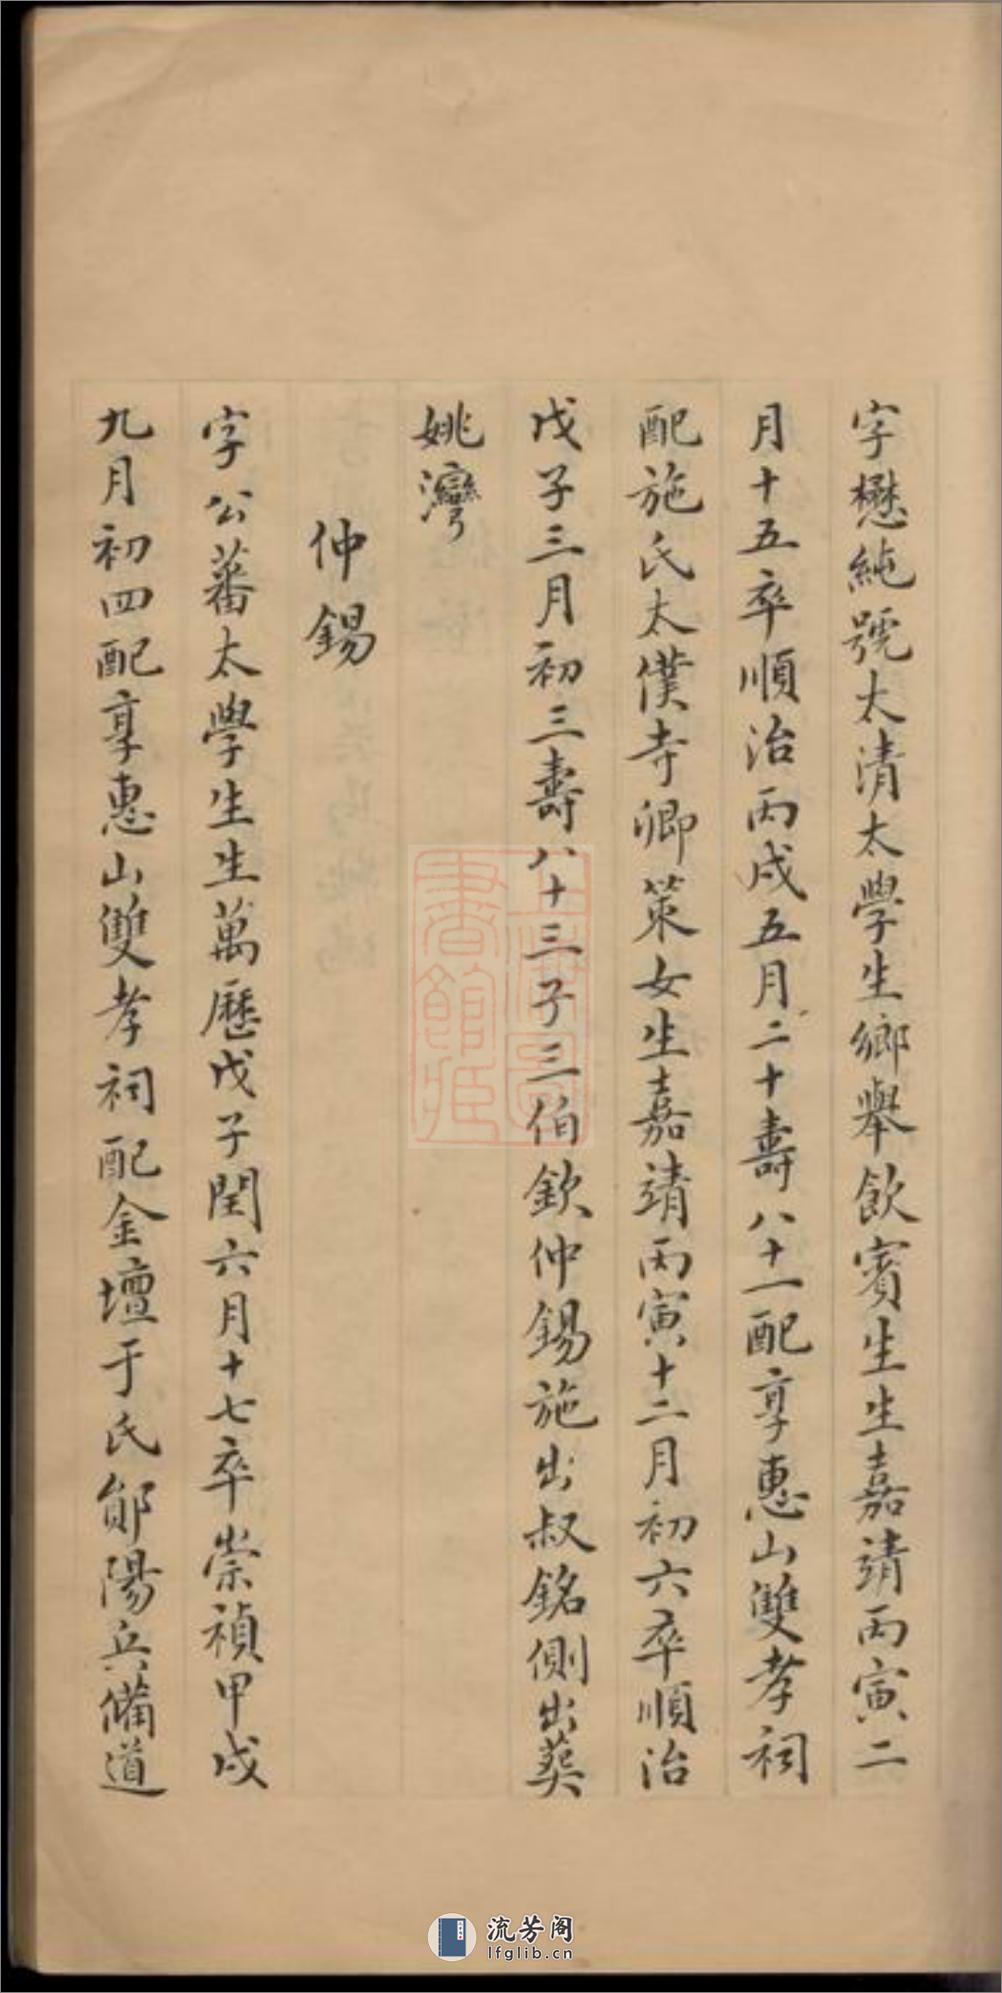 字懋純號太清太學生鄉舉飲賓生生嘉靖丙寅二
月十五卒順治丙戌五月二十壽八十一配享惠山雙孝祠
配施氏太僕寺卿策女生嘉靖丙寅十二月初六卒順治
戊子三月初三壽八十三子三伯欽仲錫施出叔銘側出葬
姚灣
仲錫
字公蕃太學生生萬歷戊子閏六月十七卒崇禎甲戌
九月初四配享惠山雙孝祠配金壇于氏鄖陽兵備道
上海圖
書館藏
流芳阁
lfglib.cn